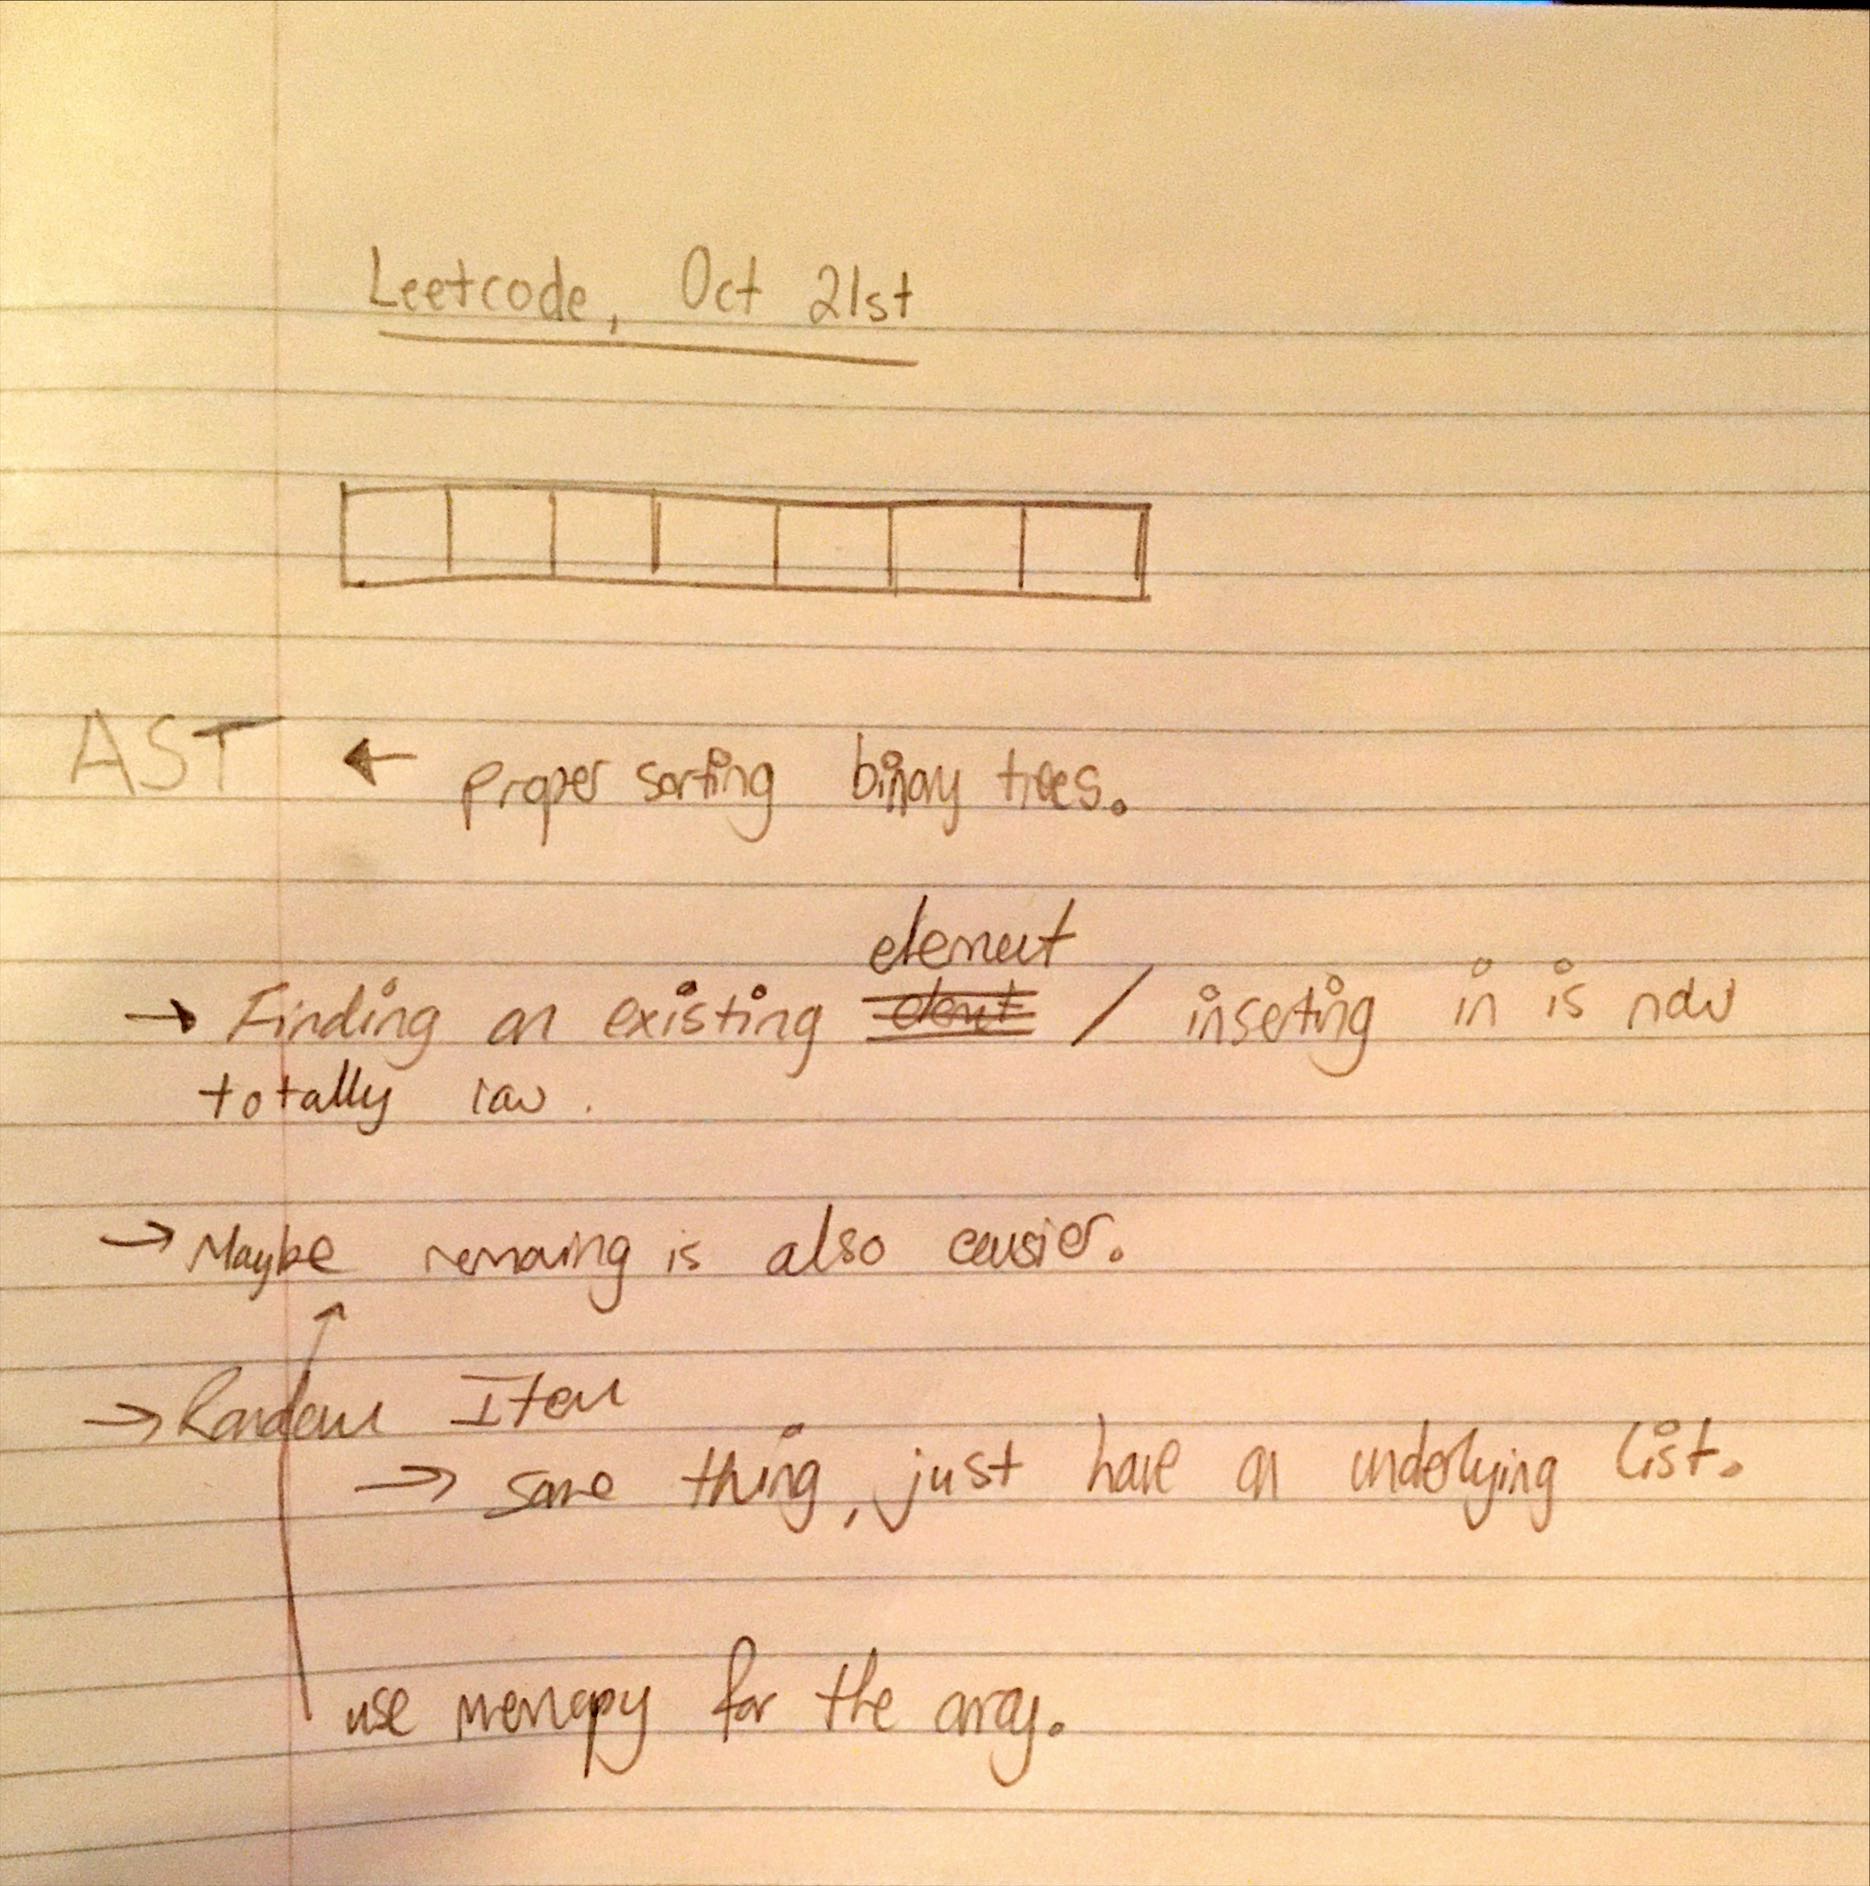 Leetcode, Oct 21st
AST ← proper sorting binary trees.
element
→ Finding an existing / inserting in is now
totally raw.
→ Maybe removing is also easier.
→ Random Item
→ same thing, just have an underlying list.
use memcpy for the array.